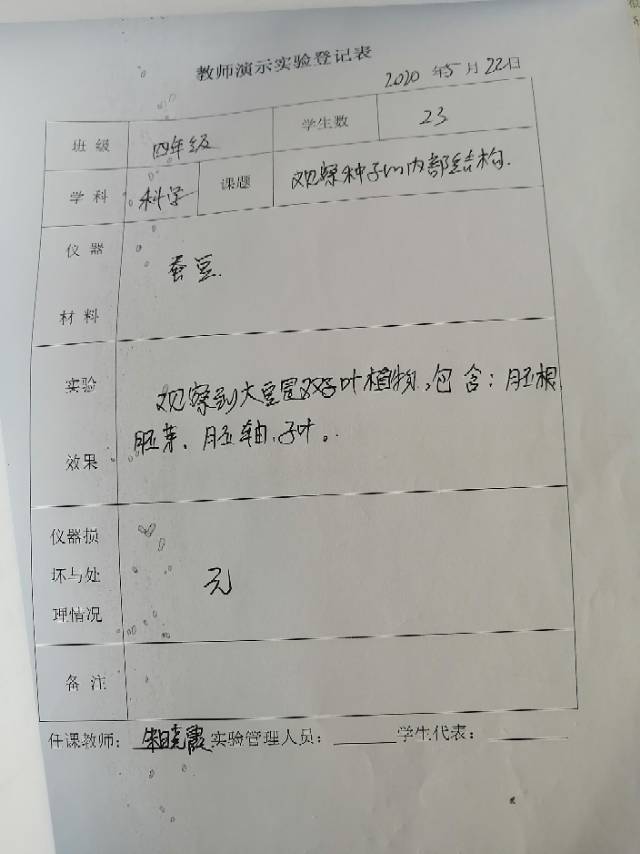 教师演示实验登记表
2020 年5 月 22日
班 级 四年级 学生数 23
学 科 科学 课题 观察种子的内部结构.
仪 器
材 料
蚕豆.
实验
效果
观察到大豆是双子叶植物,包含:胚根
胚芽、胚轴、子叶。
仪器损
坏与处
理情况
无
备 注
任课教师: 朱晓霞 实验管理人员: 学生代表: